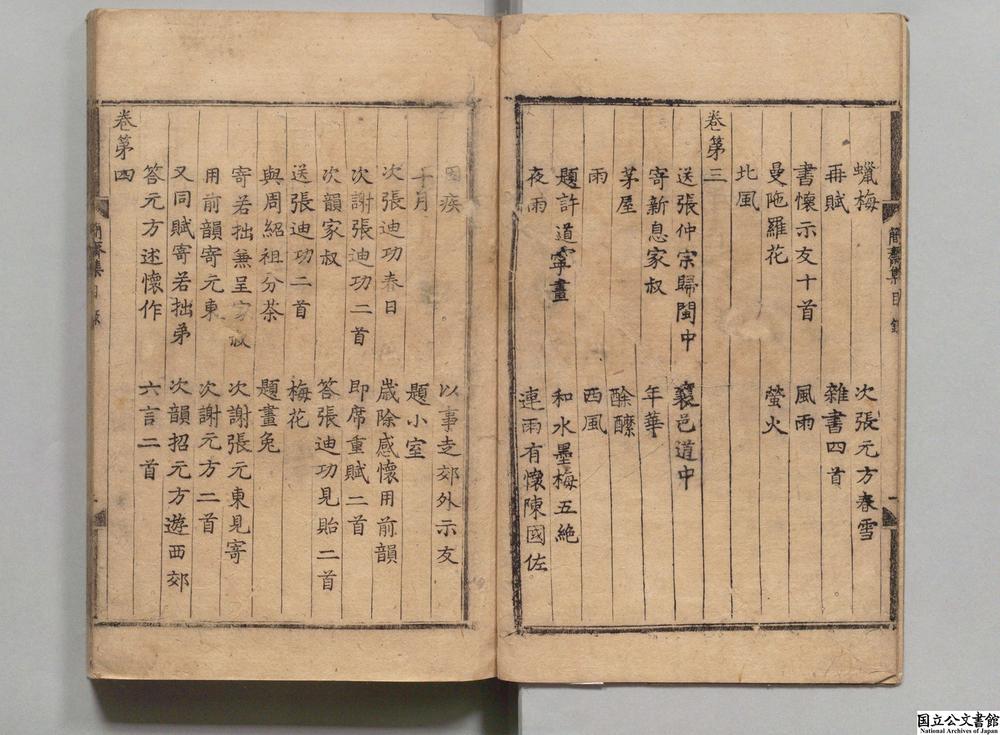 蠟梅　次張元方春雪
再賦　雜書四首
書懷示友十首　風雨
曼陁羅花　螢火
北風
卷第三
送張仲宗歸閩中　襄邑道中
寄新息家叔　年華
茅屋　酴醾
雨　西風
題許道寧畫　和水墨梅五絶
夜雨　連雨有懷陳國佐
簡齋集目錄
因疾　以事走郊外示友
十月　題小室
次張迪功春日　歲除感懷用前韻
次謝張迪功二首　即席重賦二首
次韻家叔　答張迪功見貽二首
送張迪功二首　梅花
與周紹祖分茶　題畫兔
寄若拙兼呈家叔　次謝張元東見寄
用前韻寄元東　次謝元方二首
又同賦寄若拙弟　次韻招元方遊西郊
答元方述懷作　六言二首
卷第四
簡齋集目
国立公文書館
National Archives of Japan